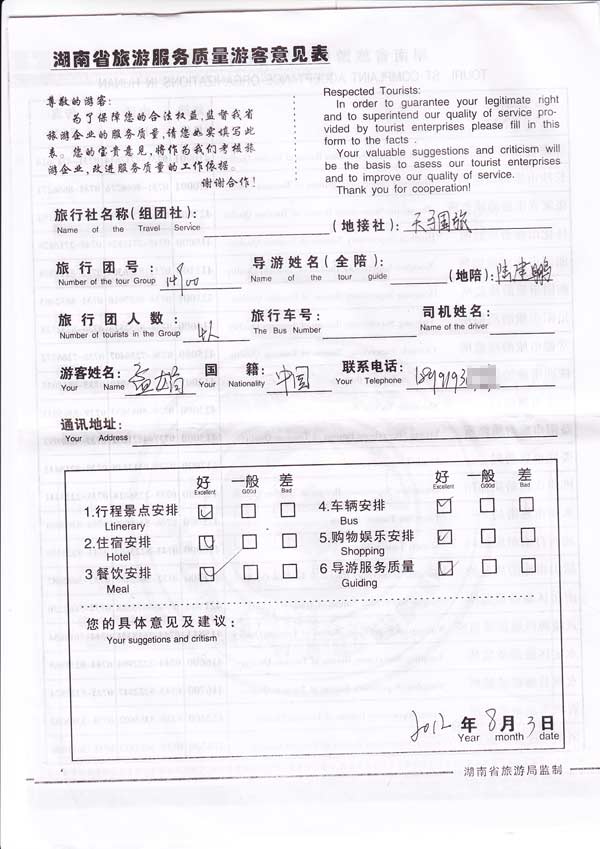 湖南省旅游服务质量游客意见表
尊敬的游客:
为了保障您的合法权益,监督我省
旅游企业的服务质量,请您如实填写此
表。您的宝贵意见,将作为我们考核旅
游企业,改进服务质量的工作依据。
谢谢合作!
Respected Tourists:
In order to guarantee your legitimate right
and to superintend our quality of service pro-
vided by tourist enterprises please fill in this
form to the facts .
Your valuable suggestions and criticism will
be the basis to assess our tourist enterprises
and to improve our quality of service.
Thank you for cooperation!
旅行社名称(组团社): (地接社):
Name of the Travel Service
旅行团号: 导游姓名(全陪): (地陪):陆建鹏
Number of the tour Group 1400 Name of the tour guide
旅行团人数: 旅行车号: 司机姓名:
Number of tourists in the Group 4人 The Bus Number Name of the driver
游客姓名: 国籍: 中国 联系电话: 1899193
Your Name Nationality Your Telephone
通讯地址:
Your Address
好 一般 差 好 一般 差
Excellent Good Bad Excellent Good Bad
1.行程景点安排 4.车辆安排
Ltinerary Bus
2.住宿安排 5.购物娱乐安排
Hotel Shopping
3 餐饮安排 6 导游服务质量
Meal Guiding
您的具体意见及建议:
Your suggetions and critism
2012 年 8 月 3 日
Year month date
湖南省旅游局监制